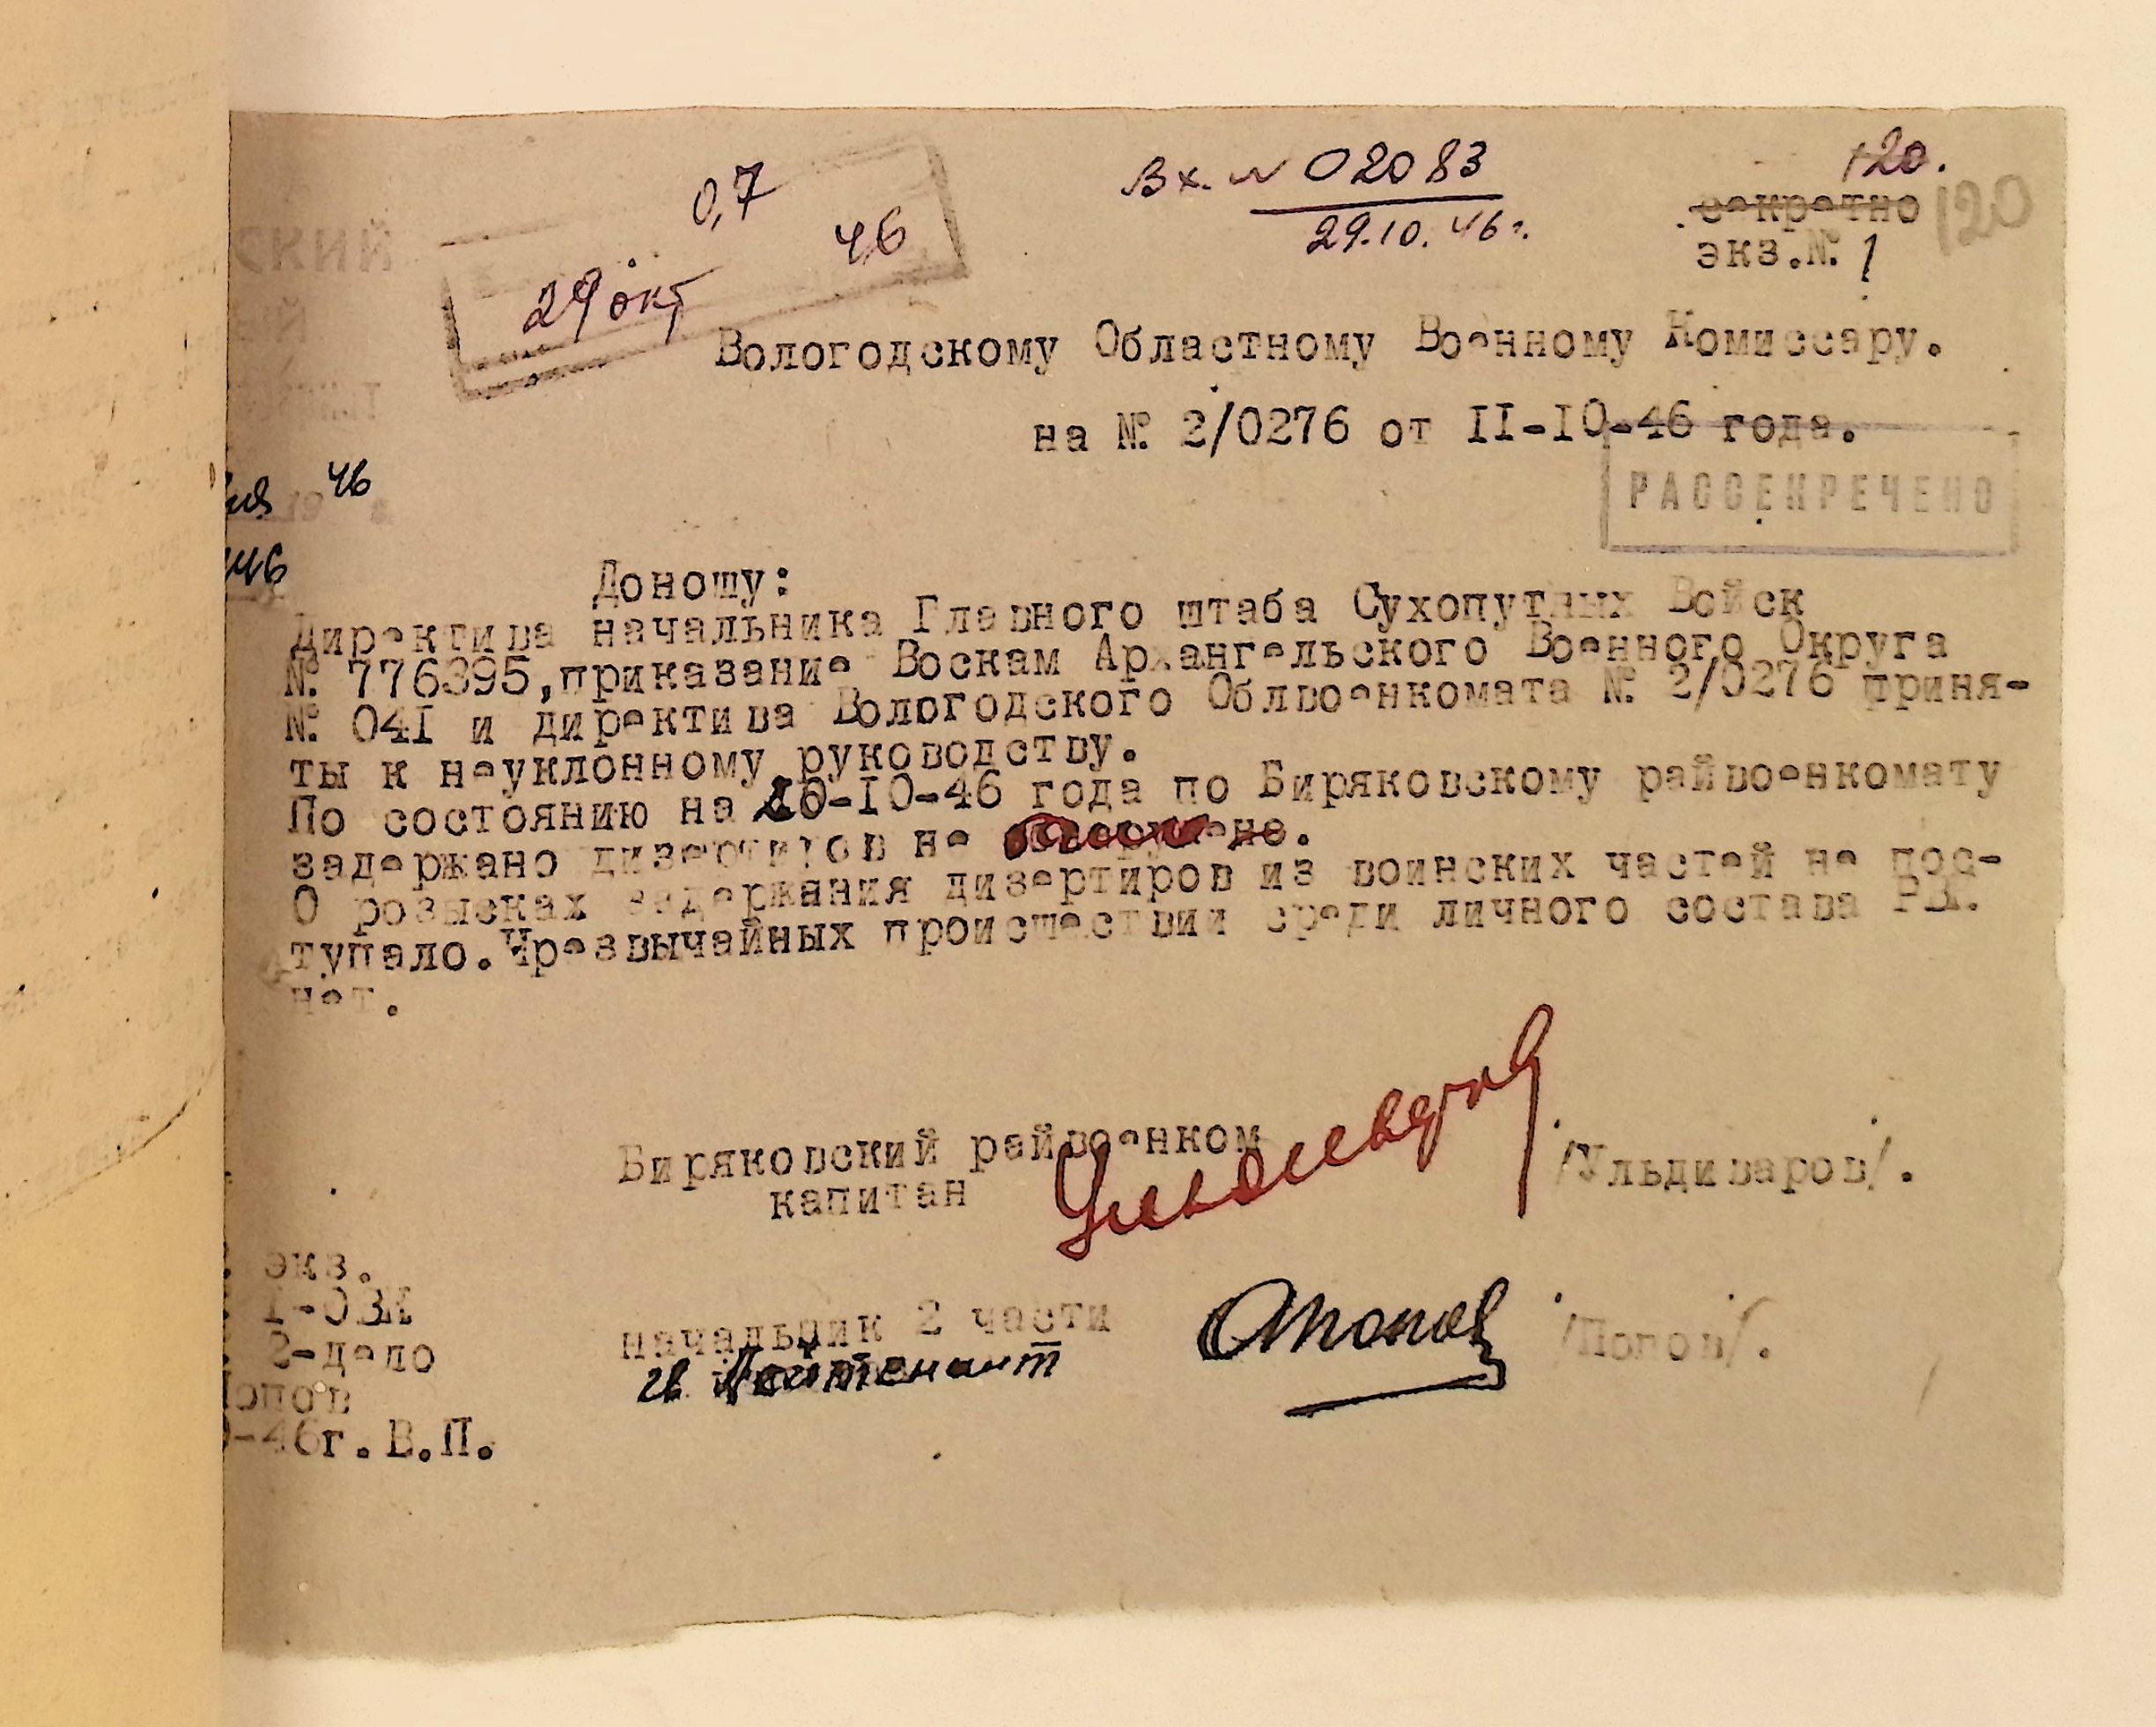 0,7
46
29 окт
Вх. № 02083
29.10.46 г.
120.
секретно
120
экз.№ 1
Вологодскому Областному Военному Комиссару.
на № 2/0276 от II-IO-46 года.
РАССЕКРЕЧЕНО
46
46
Доношу:
Директива начальника Главного штаба Сухопутных Войск
№ 776395,приказание Воскам Архангельского Военного Округа
№ 04I и директива Вологодского Облвоенкомата № 2/0276 приня-
ты к неуклонному руководству.
По состоянию на 20-IO-46 года по Биряковскому райвоенкомату
задержано дизертиров не
О розысках задержания дизертиров из воинских частей не пос-
тупало.Чрезвычайных происшествий среди личного состава РВК.
нет.
Биряковский райвоенком
капитан
Ульдиваров
/Ульдиваров/.
экз.
I-ОВК
2-дело
Попов
-46г.В.П.
начальник 2 части
гв. Лейтенант
Попов
/Попов/.